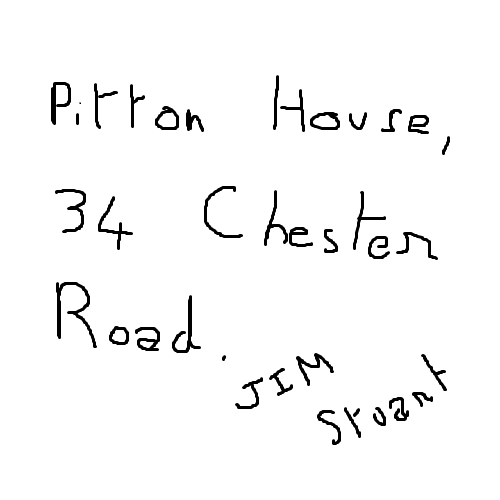 Pitton House,
34 Chester
Road.
JIM
Stuart